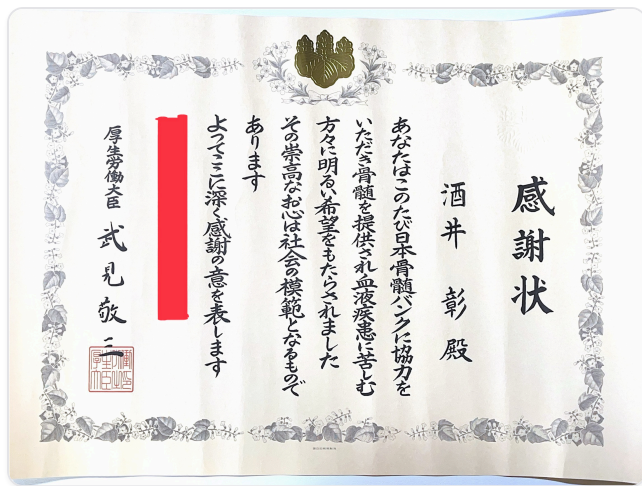 感謝状
酒井 彰 殿
あなたはこのたび日本骨髄バンクに協力を
いただき骨髄を提供され血液疾患に苦しむ
方々に明るい希望をもたらされました
その崇高なお心は社会の模範となるもので
あります
よってここに深く感謝の意を表します
厚生労働大臣 武見敬三